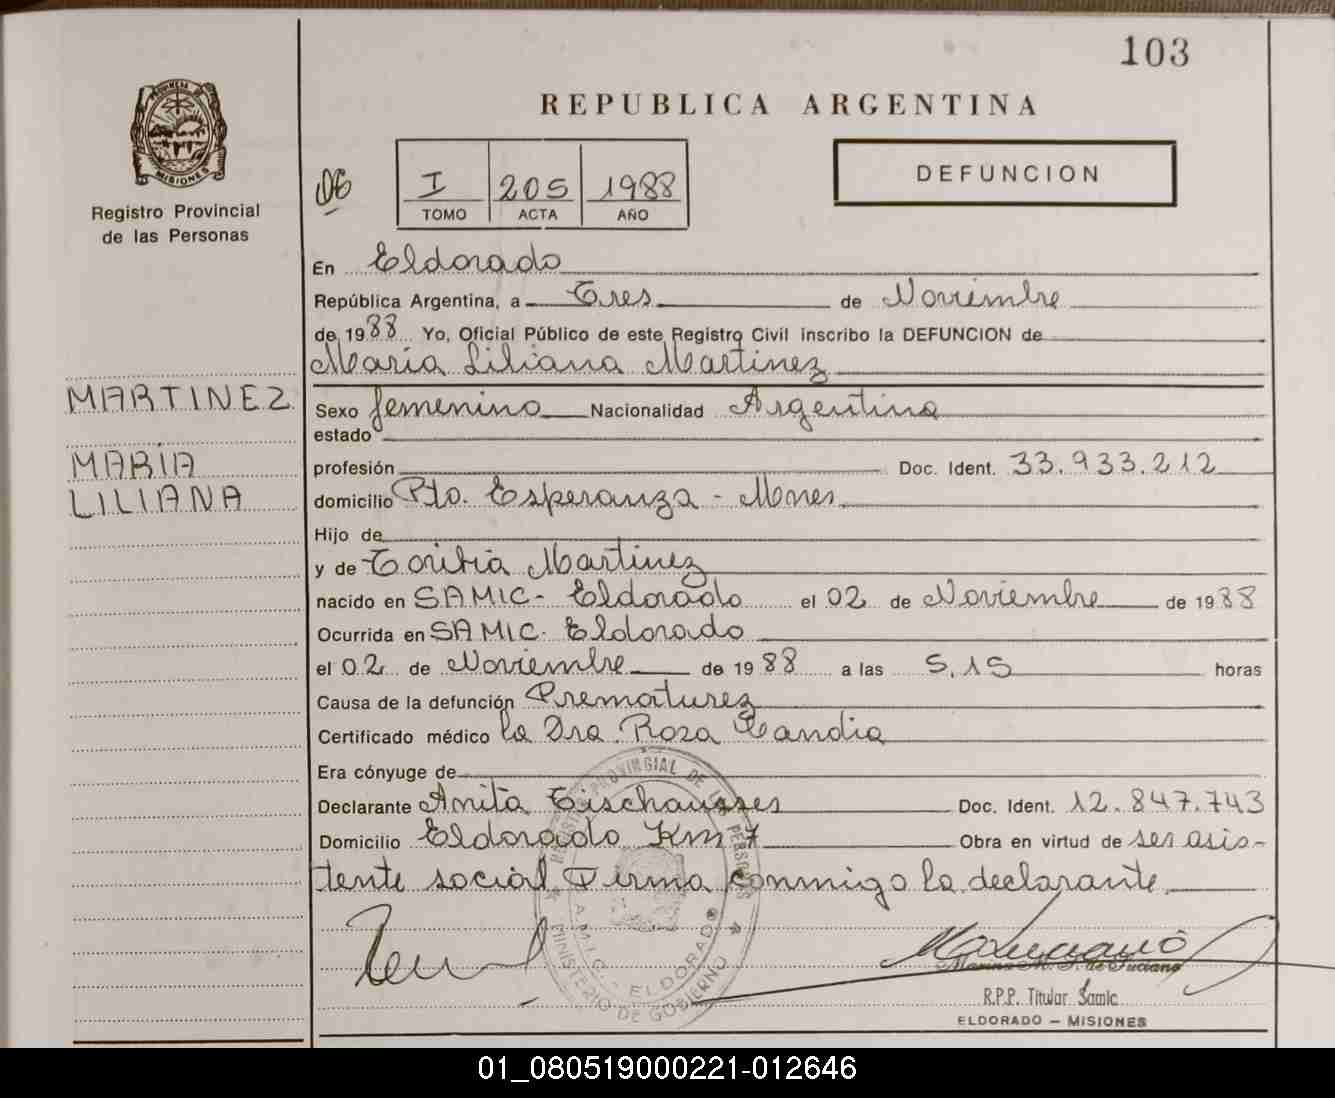 103
REPUBLICA ARGENTINA
PROVINCIA DE
MISIONES
Registro Provincial
de las Personas
I 205 1988
TOMO ACTA AÑO
DEFUNCION
En Eldorado
República Argentina, a Tres de Noviembre
de 1988 Yo, Oficial Público de este Registro Civil inscribo la DEFUNCION de
María Liliana Martinez
MARTINEZ
Sexo femenino Nacionalidad Argentina
estado
MARÍA
profesión Doc. Ident. 33.933.212
LILIANA
domicilio Pto. Esperanza - Mnes
Hijo de
y de Toribia Martinez
nacido en SAMIC - Eldorado el 02 de Noviembre de 1988
Ocurrida en SAMIC. Eldorado
el 02 de Noviembre de 1988 a las 5,15 horas
Causa de la defunción Prematurez
Certificado médico la Dra. Rosa Candia
Era cónyuge de
Declarante Anita Tischausses Doc. Ident. 12.847.743
Domicilio Eldorado Km 7 Obra en virtud de ser asis-
tente social Firma conmigo la declarante
REGISTRO PROVINCIAL DE LAS PERSONAS
S.A.M.I.C. - ELDORADO
MINISTERIO DE GOBIERNO
R.P.P. Titular Samic
ELDORADO – MISIONES
01_080519000221-012646